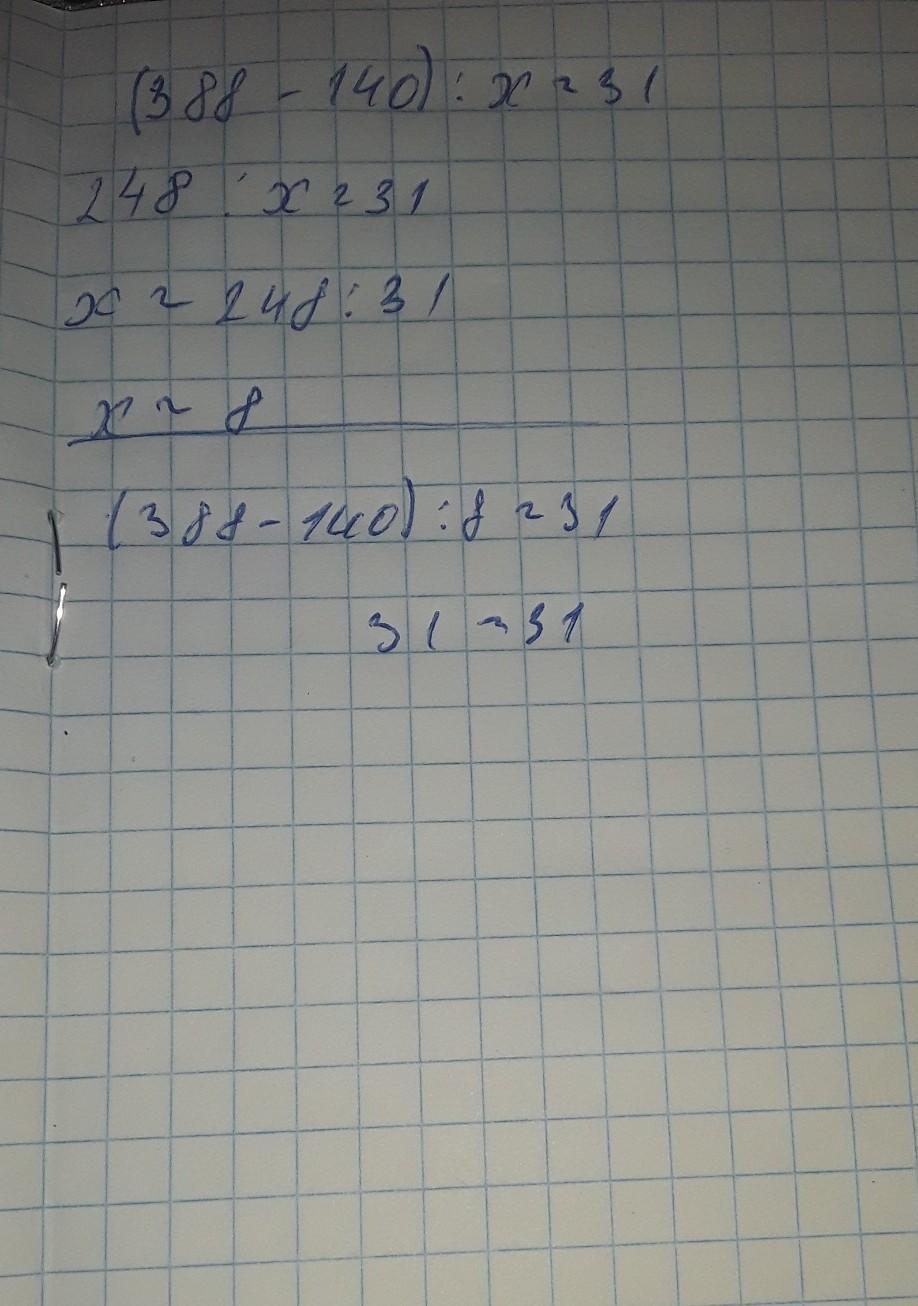 (388 - 140) : x = 31
248 : x = 31
x = 248 : 31
x = 8
(388 - 140) : 8 = 31
31 = 31